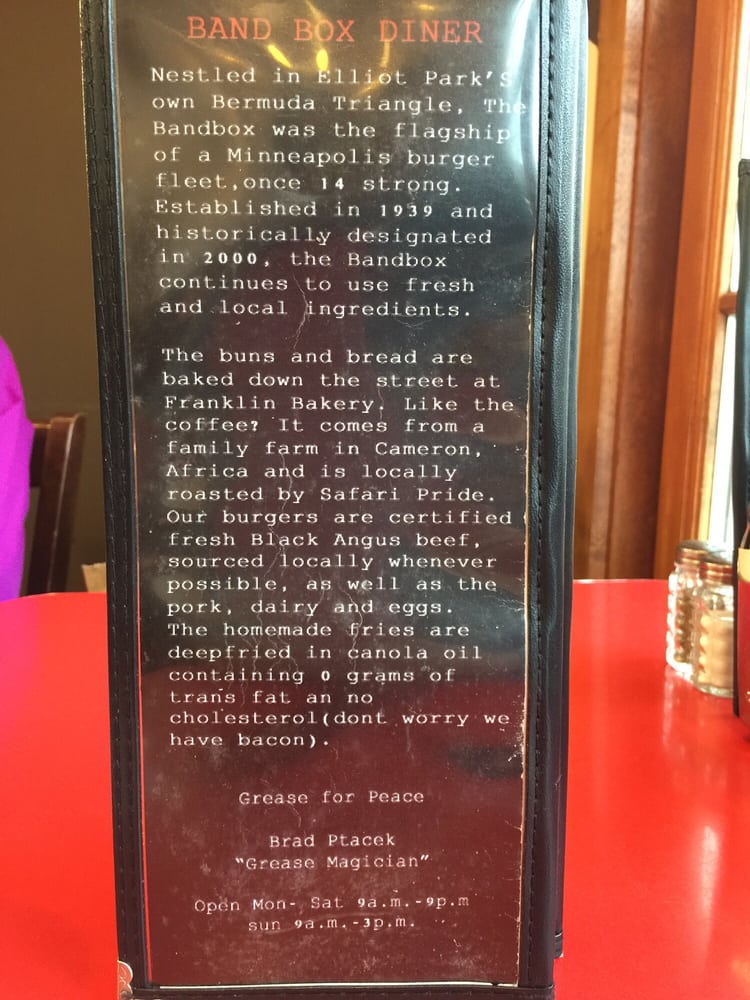 BAND BOX DINER
Nestled in Elliot Park'S
own Bermuda Triangle, The
Bandbox was the flagship
of a Minneapolis burger
fleet,once 14 strong.
Established in 1939 and
historically designated
in 2000, the Bandbox
continues to use fresh
and local ingredients.
The buns and bread are
baked down the street at
Franklin Bakery. Like the
coffee? It comes from a
family farm in Cameron,
Africa and is locally
roasted by Safari Pride.
Our burgers are certified
fresh Black Angus beef,
sourced locally whenever
possible, as well as the
pork, dairy and eggs.
The homemade fries are
deepfried in canola oil
containing 0 grams of
trans fat an no
cholesterol(dont worry we
have bacon).
Grease for Peace
Brad Ptacek
"Grease Magician"
Open Mon- Sat 9a.m.-9p.m
sun 9a.m.-3p.m.